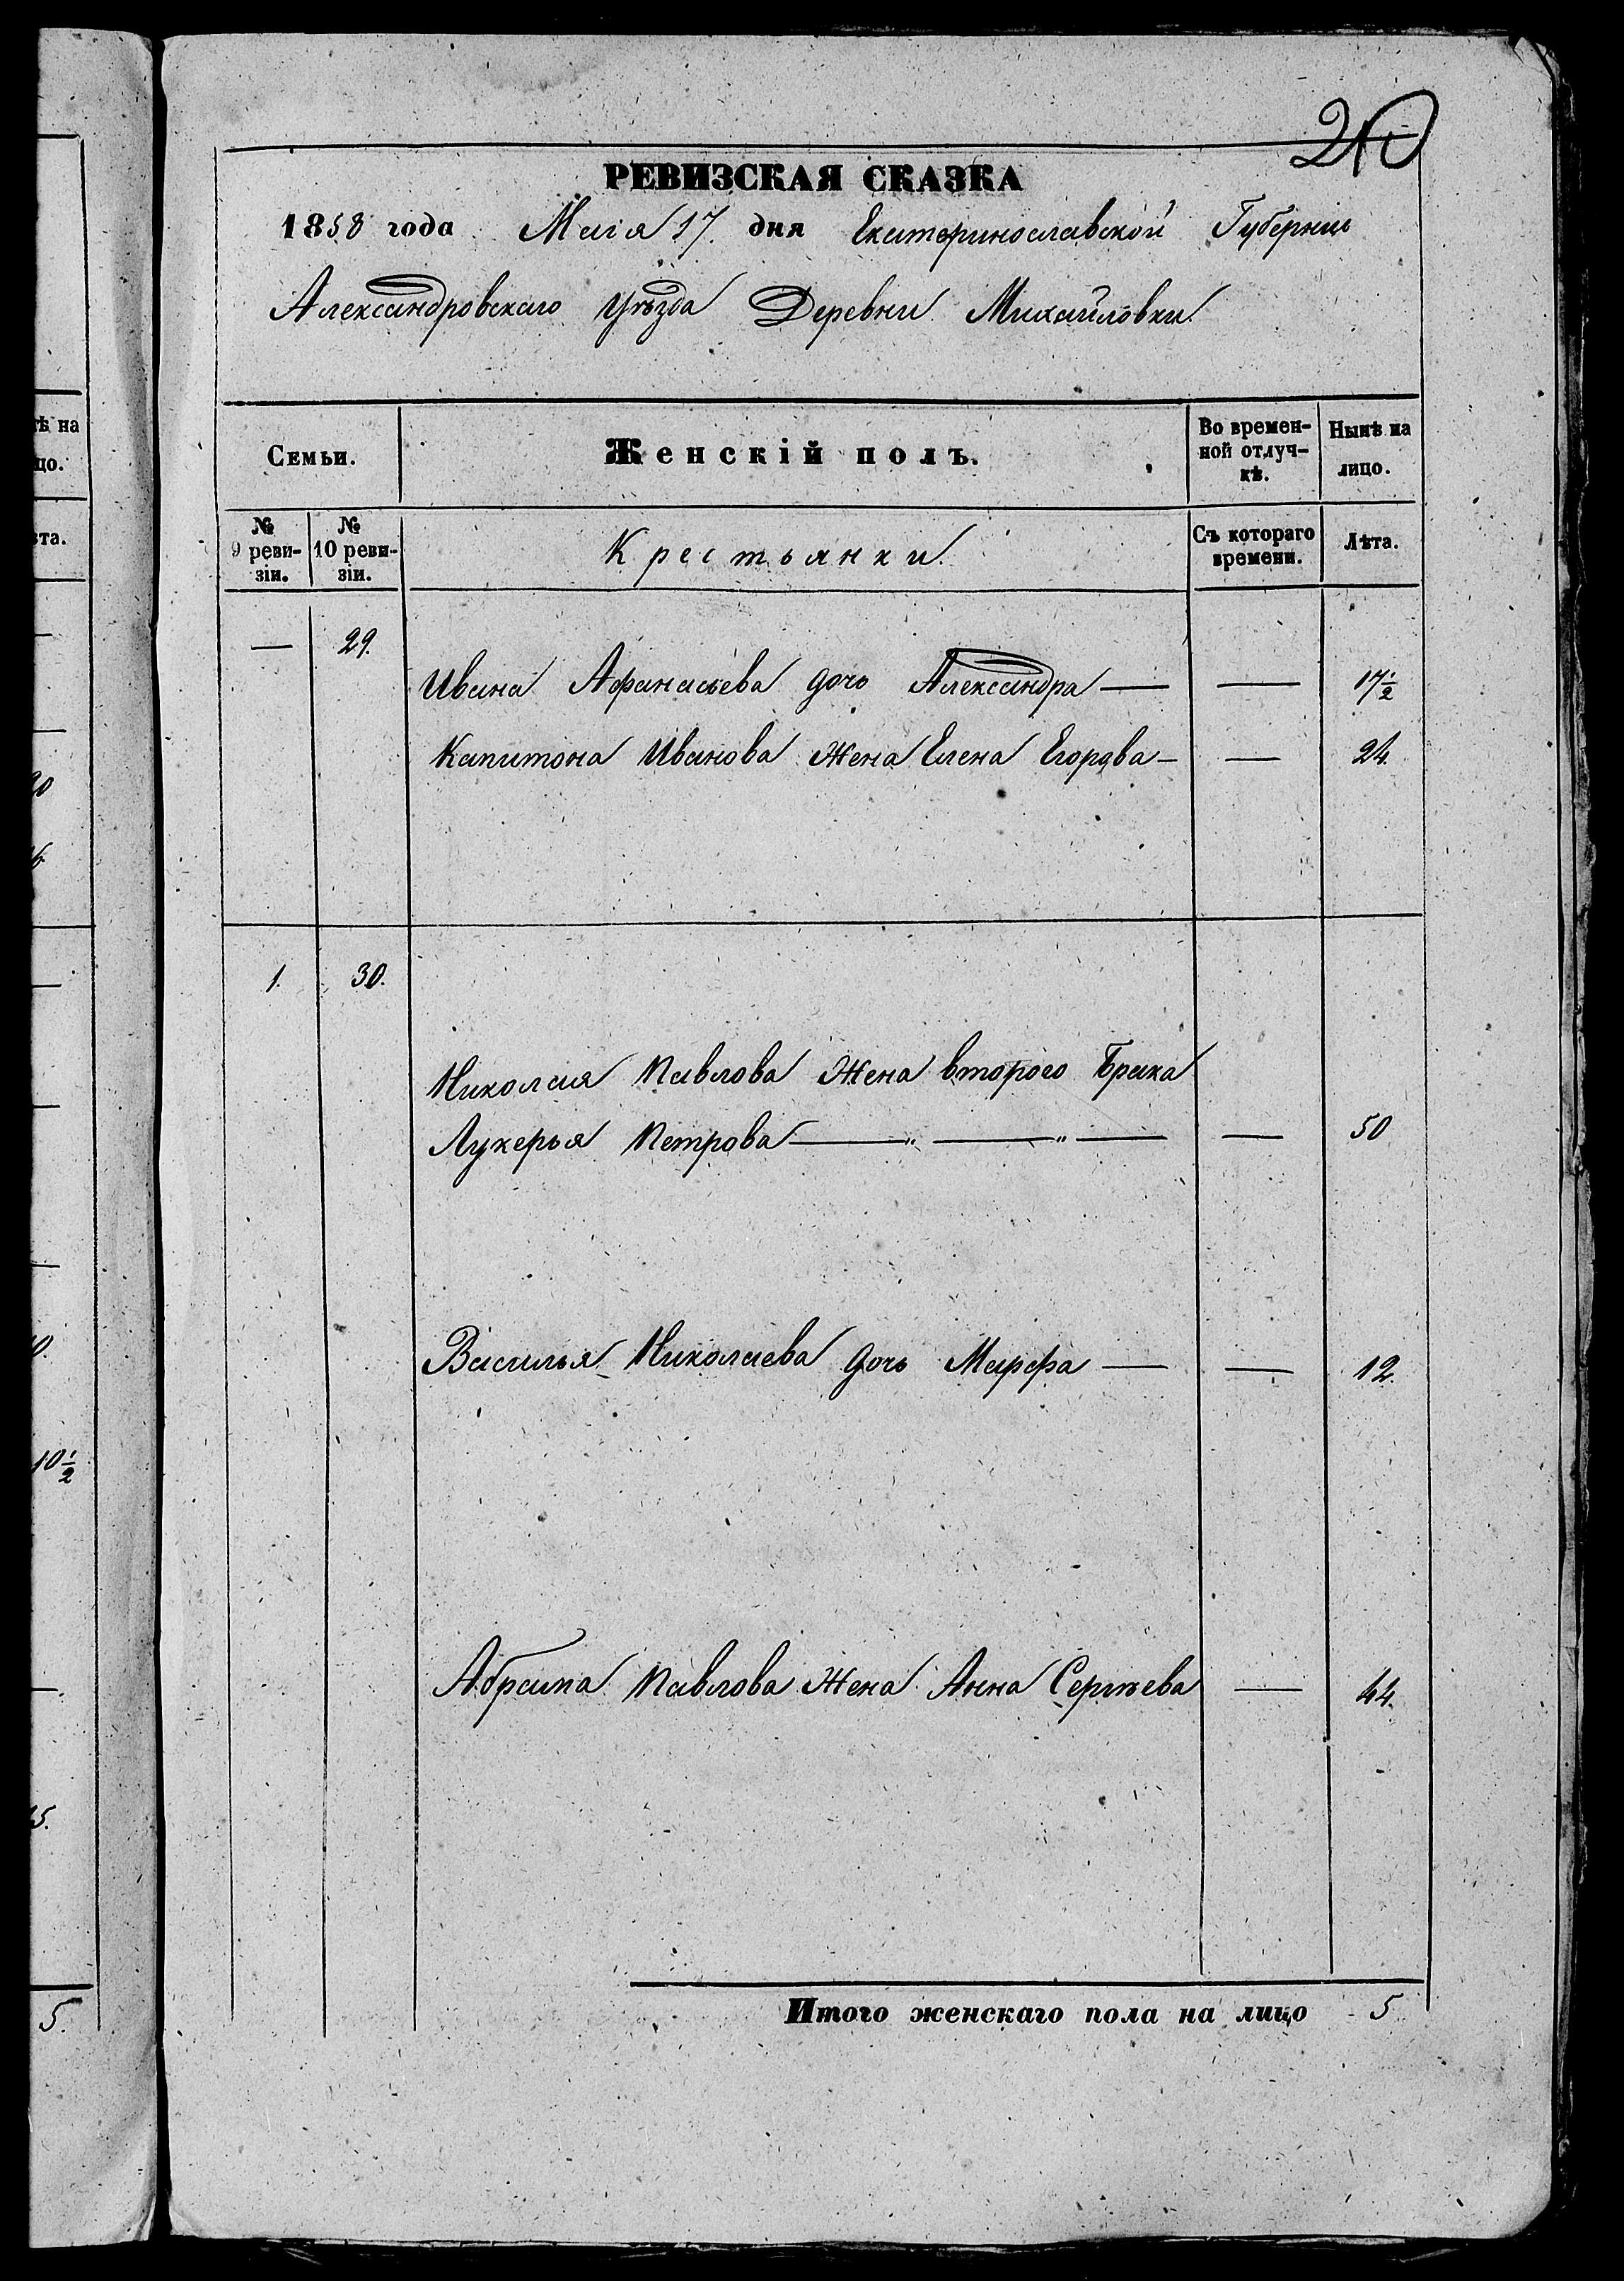 210
РЕВИЗСКАЯ СКАЗКА
1858 года Маія 17. дня Екатеринославской Губерніи
Александровскаго Уѣзда Деревни Михайловки
Семьи. Женскій полъ. Во времен-
ной отлуч-
кѣ. Нынѣ на
лицо.
№
9 реви-
зіи. №
10 реви-
зіи. Крестьянки. Съ котораго
времени. Лѣта.
— 29.
Ивана Афанасьева дочь Александра — — 17 1/2
Капитона Иванова жена Елена Егорова — — 24.
1. 30.
Николая Павлова жена втораго брака
Лукерья Петрова — „ — „ — — 50
Василья Николаева дочь Марфа — — 12.
Абрама Павлова жена Анна Сергѣева — 44.
Итого женскаго пола на лицо 5
ѣ на
цо.
ѣта.
10 1/2
5.